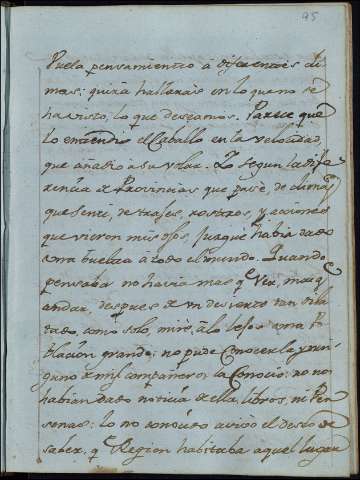 95
Vuela pensamiento à diferentes cli
mas: quizà hallarás en lo que no se
ha visto, lo que deseamos. Parece que
lo entendio el Caballo en la velocidad,
que añadio a su volar. Yo segun la dife
rencia de Provincias que pasè, de climas
que senti, de trajes, rostros, y acciones
que vieron mis ojos, juzguè habia dado
una buelta a todo el mundo. Quando
pensaba no havia mas q Ver, mas q
andar, despues de un desierto tan dila
tado, como solo, mirè à lo lejos una Po
blacion grande; no pude Conocerla, y nin
guno de mis compañeros la Conocio: no nos
habian dado noticia de ella libros, ni Per
sonas: lo no conocido avivò el deseo de
saber, q Region habitaba aquel lugar